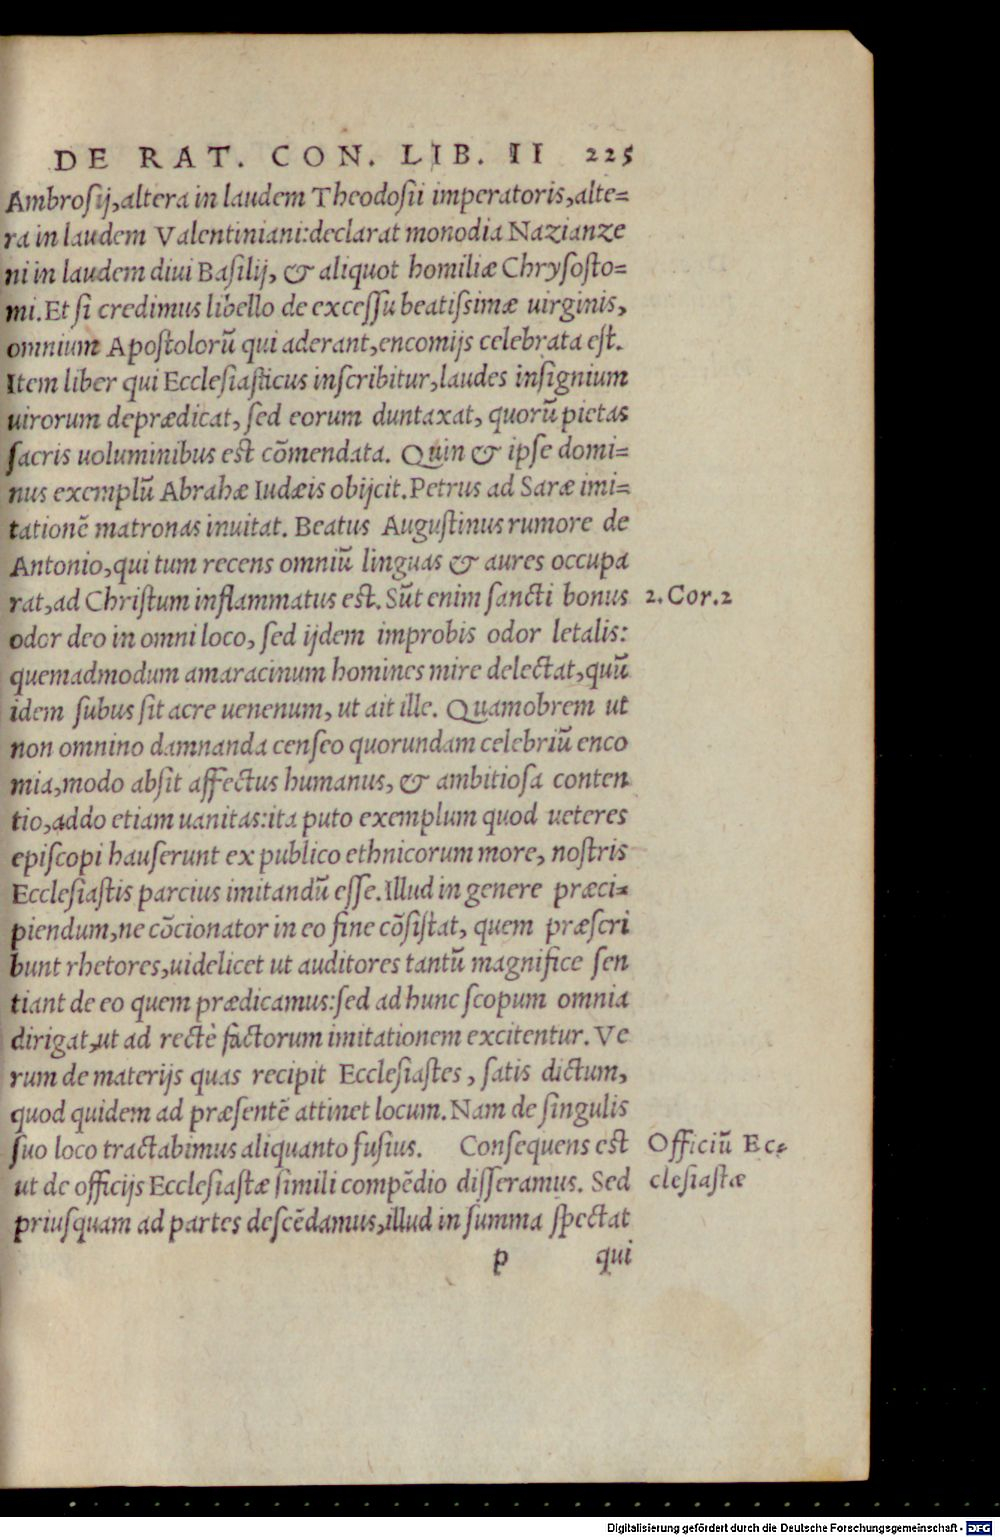 DE RAT. CON. LIB. II 225
Ambrosij,altera in laudem Theodosii imperatoris,alte=
ra in laudem Valentiniani:declarat monodia Nazianze
ni in laudem diui Basilij, & aliquot homiliæ Chrysosto=
mi.Et si credimus libello de excessu beatissimæ uirginis,
omnium Apostolorũ qui aderant,encomijs celebrata est.
Item liber qui Ecclesiasticus inscribitur,laudes insignium
uirorum deprædicat, sed eorum duntaxat, quorũ pietas
sacris uoluminibus est cõmendata. Quin & ipse domi=
nus exemplũ Abrahæ Iudæis obijcit.Petrus ad Saræ imi=
tationẽ matronas inuitat. Beatus Augustinus rumore de
Antonio,qui tum recens omniũ linguas & aures occupa
rat,ad Christum inflammatus est. Sũt enim sancti bonus
2.Cor.2
odor deo in omni loco, sed ijdem improbis odor letalis:
quemadmodum amaracinum homines mire delectat,quũ
idem subus sit acre uenenum, ut ait ille. Quamobrem ut
non omnino damnanda censeo quorundam celebriũ enco
mia,modo absit affectus humanus, & ambitiosa conten
tio,addo etiam uanitas:ita puto exemplum quod ueteres
episcopi hauserunt ex publico ethnicorum more, nostris
Ecclesiastis parcius imitandũ esse. Illud in genere præci=
piendum,ne cõcionator in eo fine cõsistat, quem præscri
bunt rhetores,uidelicet ut auditores tantũ magnifice sen
tiant de eo quem prædicamus:sed ad hunc scopum omnia
dirigat,ut ad rectè factorum imitationem excitentur. Ve
rum de materijs quas recipit Ecclesiastes, satis dictum,
quod quidem ad præsentẽ attinet locum. Nam de singulis
suo loco tractabimus aliquanto fusius. Consequens est
Officiũ Ec=
ut de officijs Ecclesiastæ simili compẽdio disseramus. Sed
clesiastæ
priusquam ad partes descẽdamus,illud in summa spectat
p qui
Digitalisierung gefördert durch die Deutsche Forschungsgemeinschaft - DFG